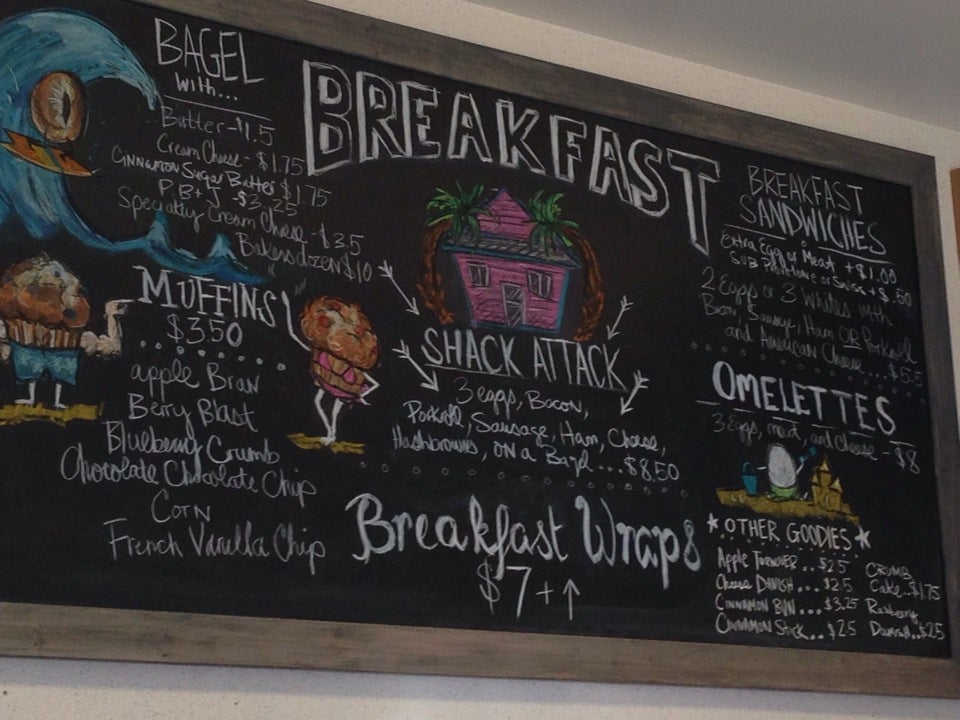 BAGEL
with...
Butter - $1.5
Cream Cheese - $1.75
Cinnamon Sugar Butter $1.75
P.B + J - $3.25
Specialty Cream Cheese - $3.5
Bakers dozen $10
MUFFINS
$3.50
apple Bran
Berry Blast
Blueberry Crumb
Chocolate Chocolate Chip
Corn
French Vanilla Chip
BREAKFAST
SHACK ATTACK
3 eggs, Bacon,
Porkroll, Sausage, Ham, Cheese,
Hashbrowns, on a Bagel ... $8.50
Breakfast Wraps
$7 + ↑
BREAKFAST
SANDWICHES
Extra Egg or Meat + $1.00
Sub Provolone or Swiss + $.50
2 Eggs or 3 Whites with
Bacon, Sausage, Ham OR Porkroll
and American Cheese .... $5.5
OMELETTES
3 Eggs, meat, and cheese - $8
* OTHER GOODIES *
Apple Turnover .. $2.5
Cheese DANISH ... $2.5
Cinnamon BUN ... $3.25
Cinnamon Stick .. $2.5
CRUMB
Cake .. $1.75
Rasberry
Danish .. $2.5